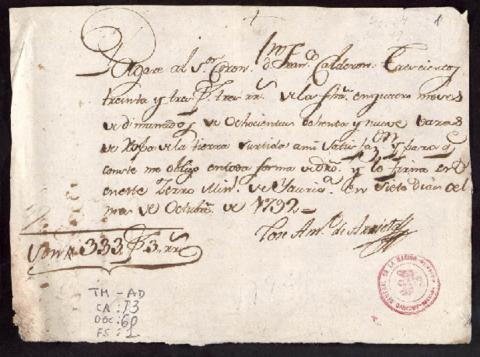 Pagaré al S.r Coron.l D.n Fran.co Calderon Trescientos
treinta y tres p.s tres rr.s de la fha. en quatro meses
dimanados de Ochocientas ochenta y nueve varas
de Ropa de la tierra Surtida a mi satisf.on y para q.e
conste me obligo en toda forma de dro. y lo firmé en
en este Serro Min.l de Yauric.a en siete Dias del
mes de Octubre de 1792
Jose Ant.o de Arrieta
Son 333 p.s 3 rr.s
TM - AD
CA : 13
DOC : 60
FS : 1